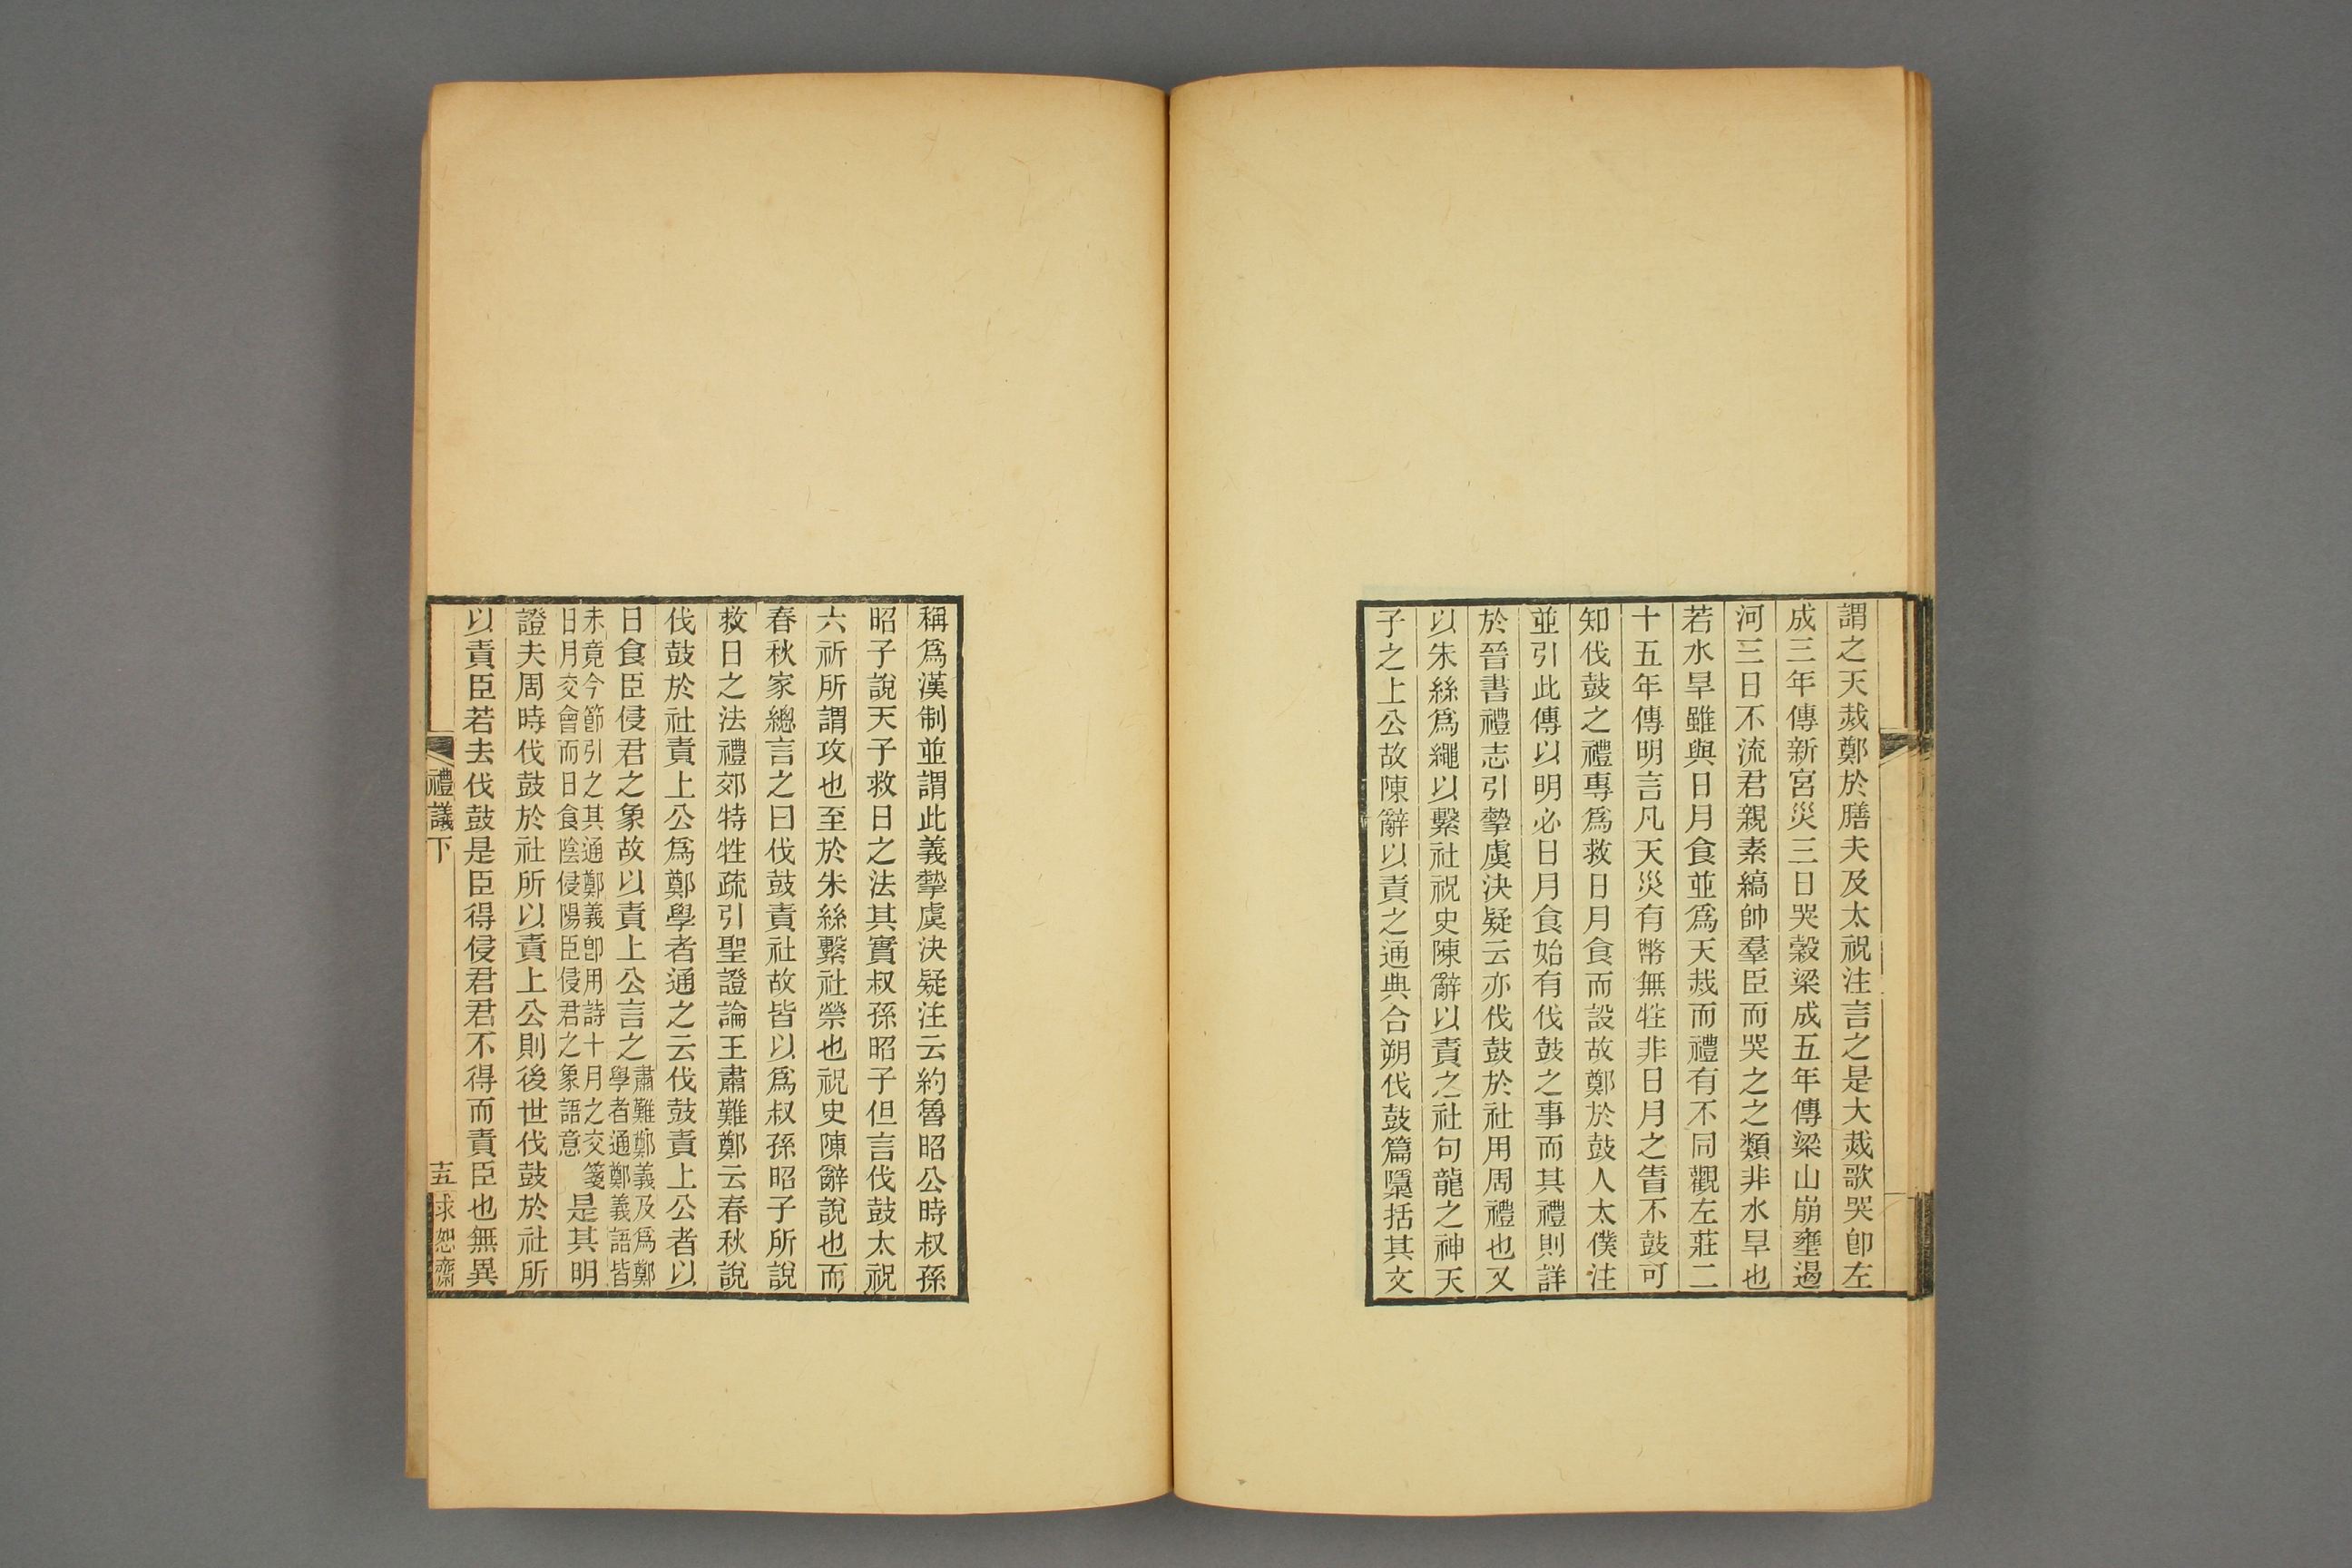 謂之天烖鄭於膳夫及太祝注言之是大烖歌哭卽左
成三年傳新宮災三日哭穀梁成五年傳梁山崩壅遏
河三日不流君親素縞帥羣臣而哭之之類非水旱也
若水旱雖與日月食並爲天烖而禮有不同觀左莊二
十五年傳明言凡天災有幣無牲非日月之眚不鼓可
知伐鼓之禮專爲救日月食而設故鄭於鼓人太僕注
並引此傳以明必日月食始有伐鼓之事而其禮則詳
於晉書禮志引摯虞決疑云亦伐鼓於社用周禮也又
以朱絲爲繩以繫社祝史陳辭以責之社句龍之神天
子之上公故陳辭以責之通典合朔伐鼓篇隱括其文
稱爲漢制並謂此義摯虞決疑注云約魯昭公時叔孫
昭子說天子救日之法其實叔孫昭子但言伐鼓太祝
六祈所謂攻也至於朱絲繫社禜也祝史陳辭說也而
春秋家總言之曰伐鼓責社故皆以爲叔孫昭子所說
救日之法禮郊特牲疏引聖證論王肅難鄭云春秋說
伐鼓於社責上公爲鄭學者通之云伐鼓責上公者以
日食臣侵君之象故以責上公言之肅難鄭義及爲鄭
學者通鄭義語皆
未竟今節引之其通鄭義卽用詩十月之交箋
日月交會而日食陰侵陽臣侵君之象語意是其明
證夫周時伐鼓於社所以責上公則後世伐鼓於社所
以責臣若去伐鼓是臣得侵君君不得而責臣也無異
禮議下
十五
求恕齋